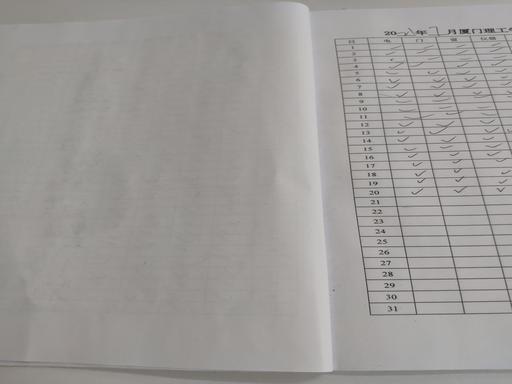 年 月厦门理工
日 电 门 窗 仪器
1
2
3
4
5
6
7
8
9
10
11
12
13
14
15
16
17
18
19
20
21
22
23
24
25
26
27
28
29
30
31